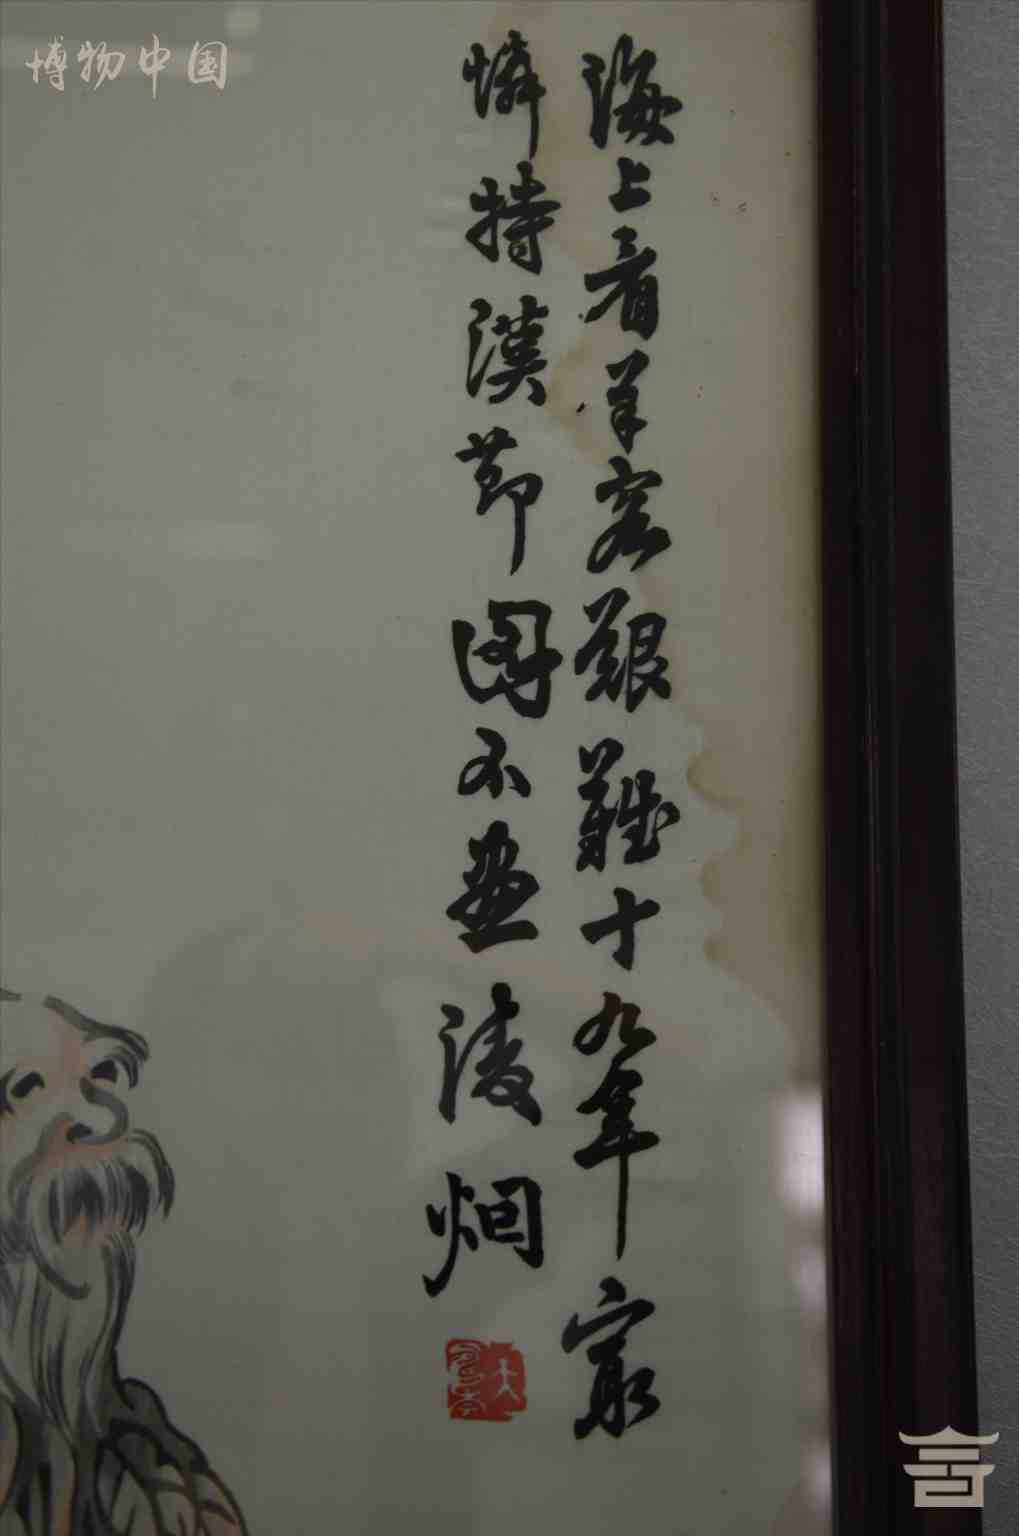 博物中国
海上看羊客艱難十九年寂
憐持漢節圖不畫淩烟
大